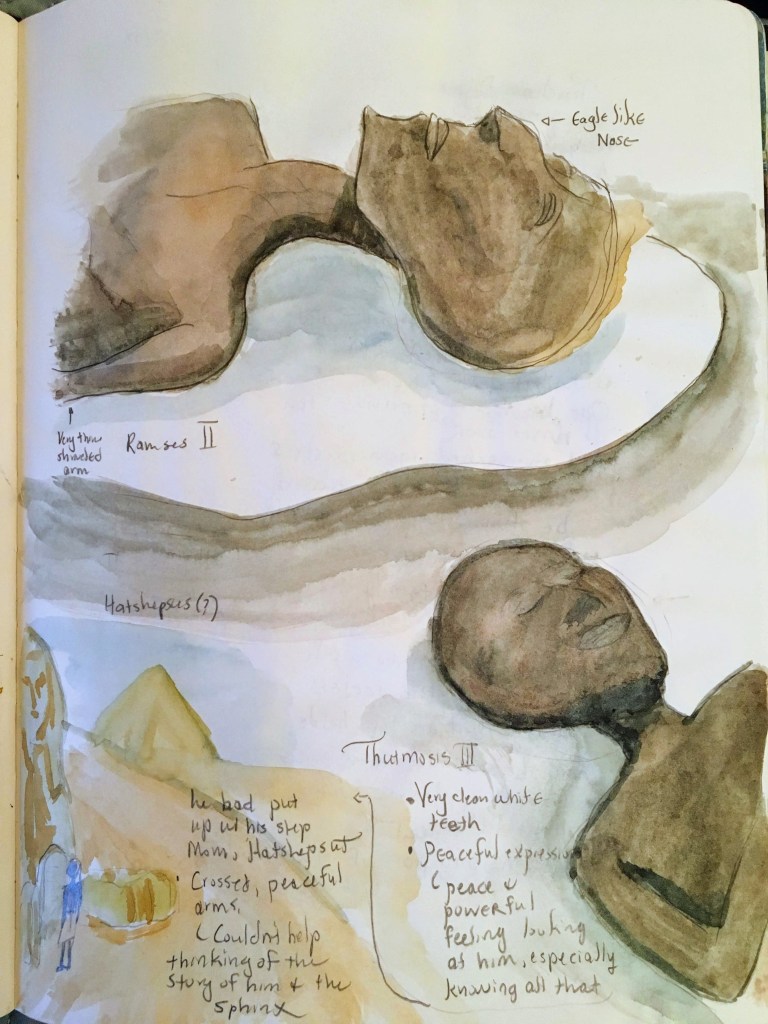 ← Eagle like
Nose
Very thin
shriveled
arm
Ramses II
Hatshepses(?)
Thutmosis III
• Very clean white
teeth
• Peaceful expression
(peace &
powerful
feeling looking
at him, especially
knowing all that
he had put
up w his step
Mom, Hatshepsut
• Crossed, peaceful
arms.
(Couldn't help
thinking of the
story of him & the
Sphinx